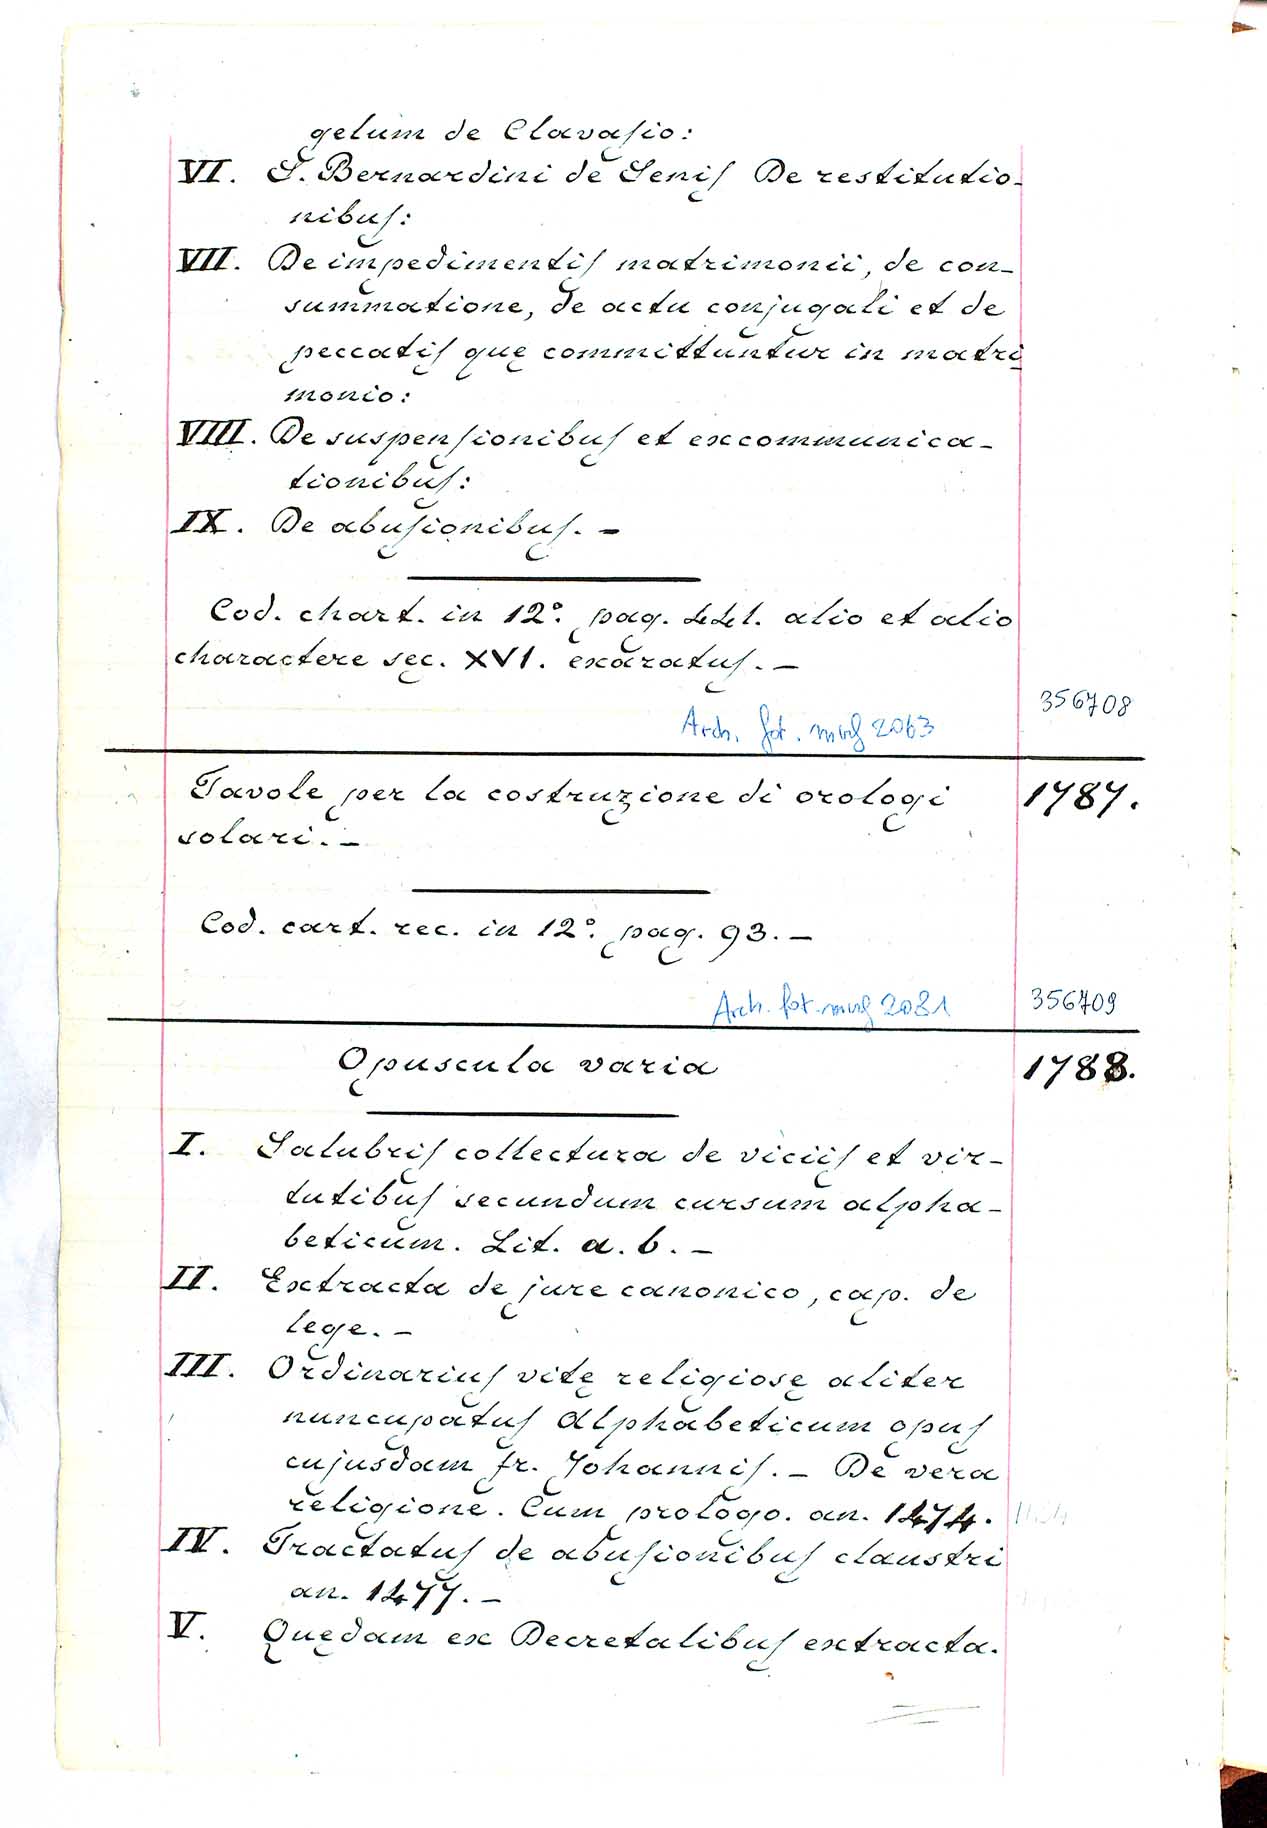 gelum de Clavasio:
VI. S. Bernardini de Senis De restitutio-
nibus:
VII. De impedimentis matrimonii, de con-
summatione, de actu conjugali et de
peccatis quę committuntur in matri
monio:
VIII. De suspensionibus et excommunica-
tionibus:
IX. De abusionibus. -
Cod. chart. in 12°. pag. 441. alio et alio
charactere sec. XVI. exaratus. -
356708
Arch. fot. neg 2063
Tavole per la costruzione di orologi 1787.
solari. -
Cod. cart. rec. in 12°. pag. 93. -
Arch. fot. neg 2081 356709
Opuscula varia 1788.
I. Salubris collectura de viciis et vir-
tutibus secundum cursum alpha-
beticum. Lit. a. b. -
II. Extracta de jure canonico, cap. de
lege. -
III. Ordinarius vitę religiosę aliter
nuncupatus Alphabeticum opus
cujusdam fr. Johannis. - De vera
religione. Cum prologo. an. 1474.
IV. Tractatus de abusionibus claustri
an. 1477. -
V. Quędam ex Decretalibus extracta.